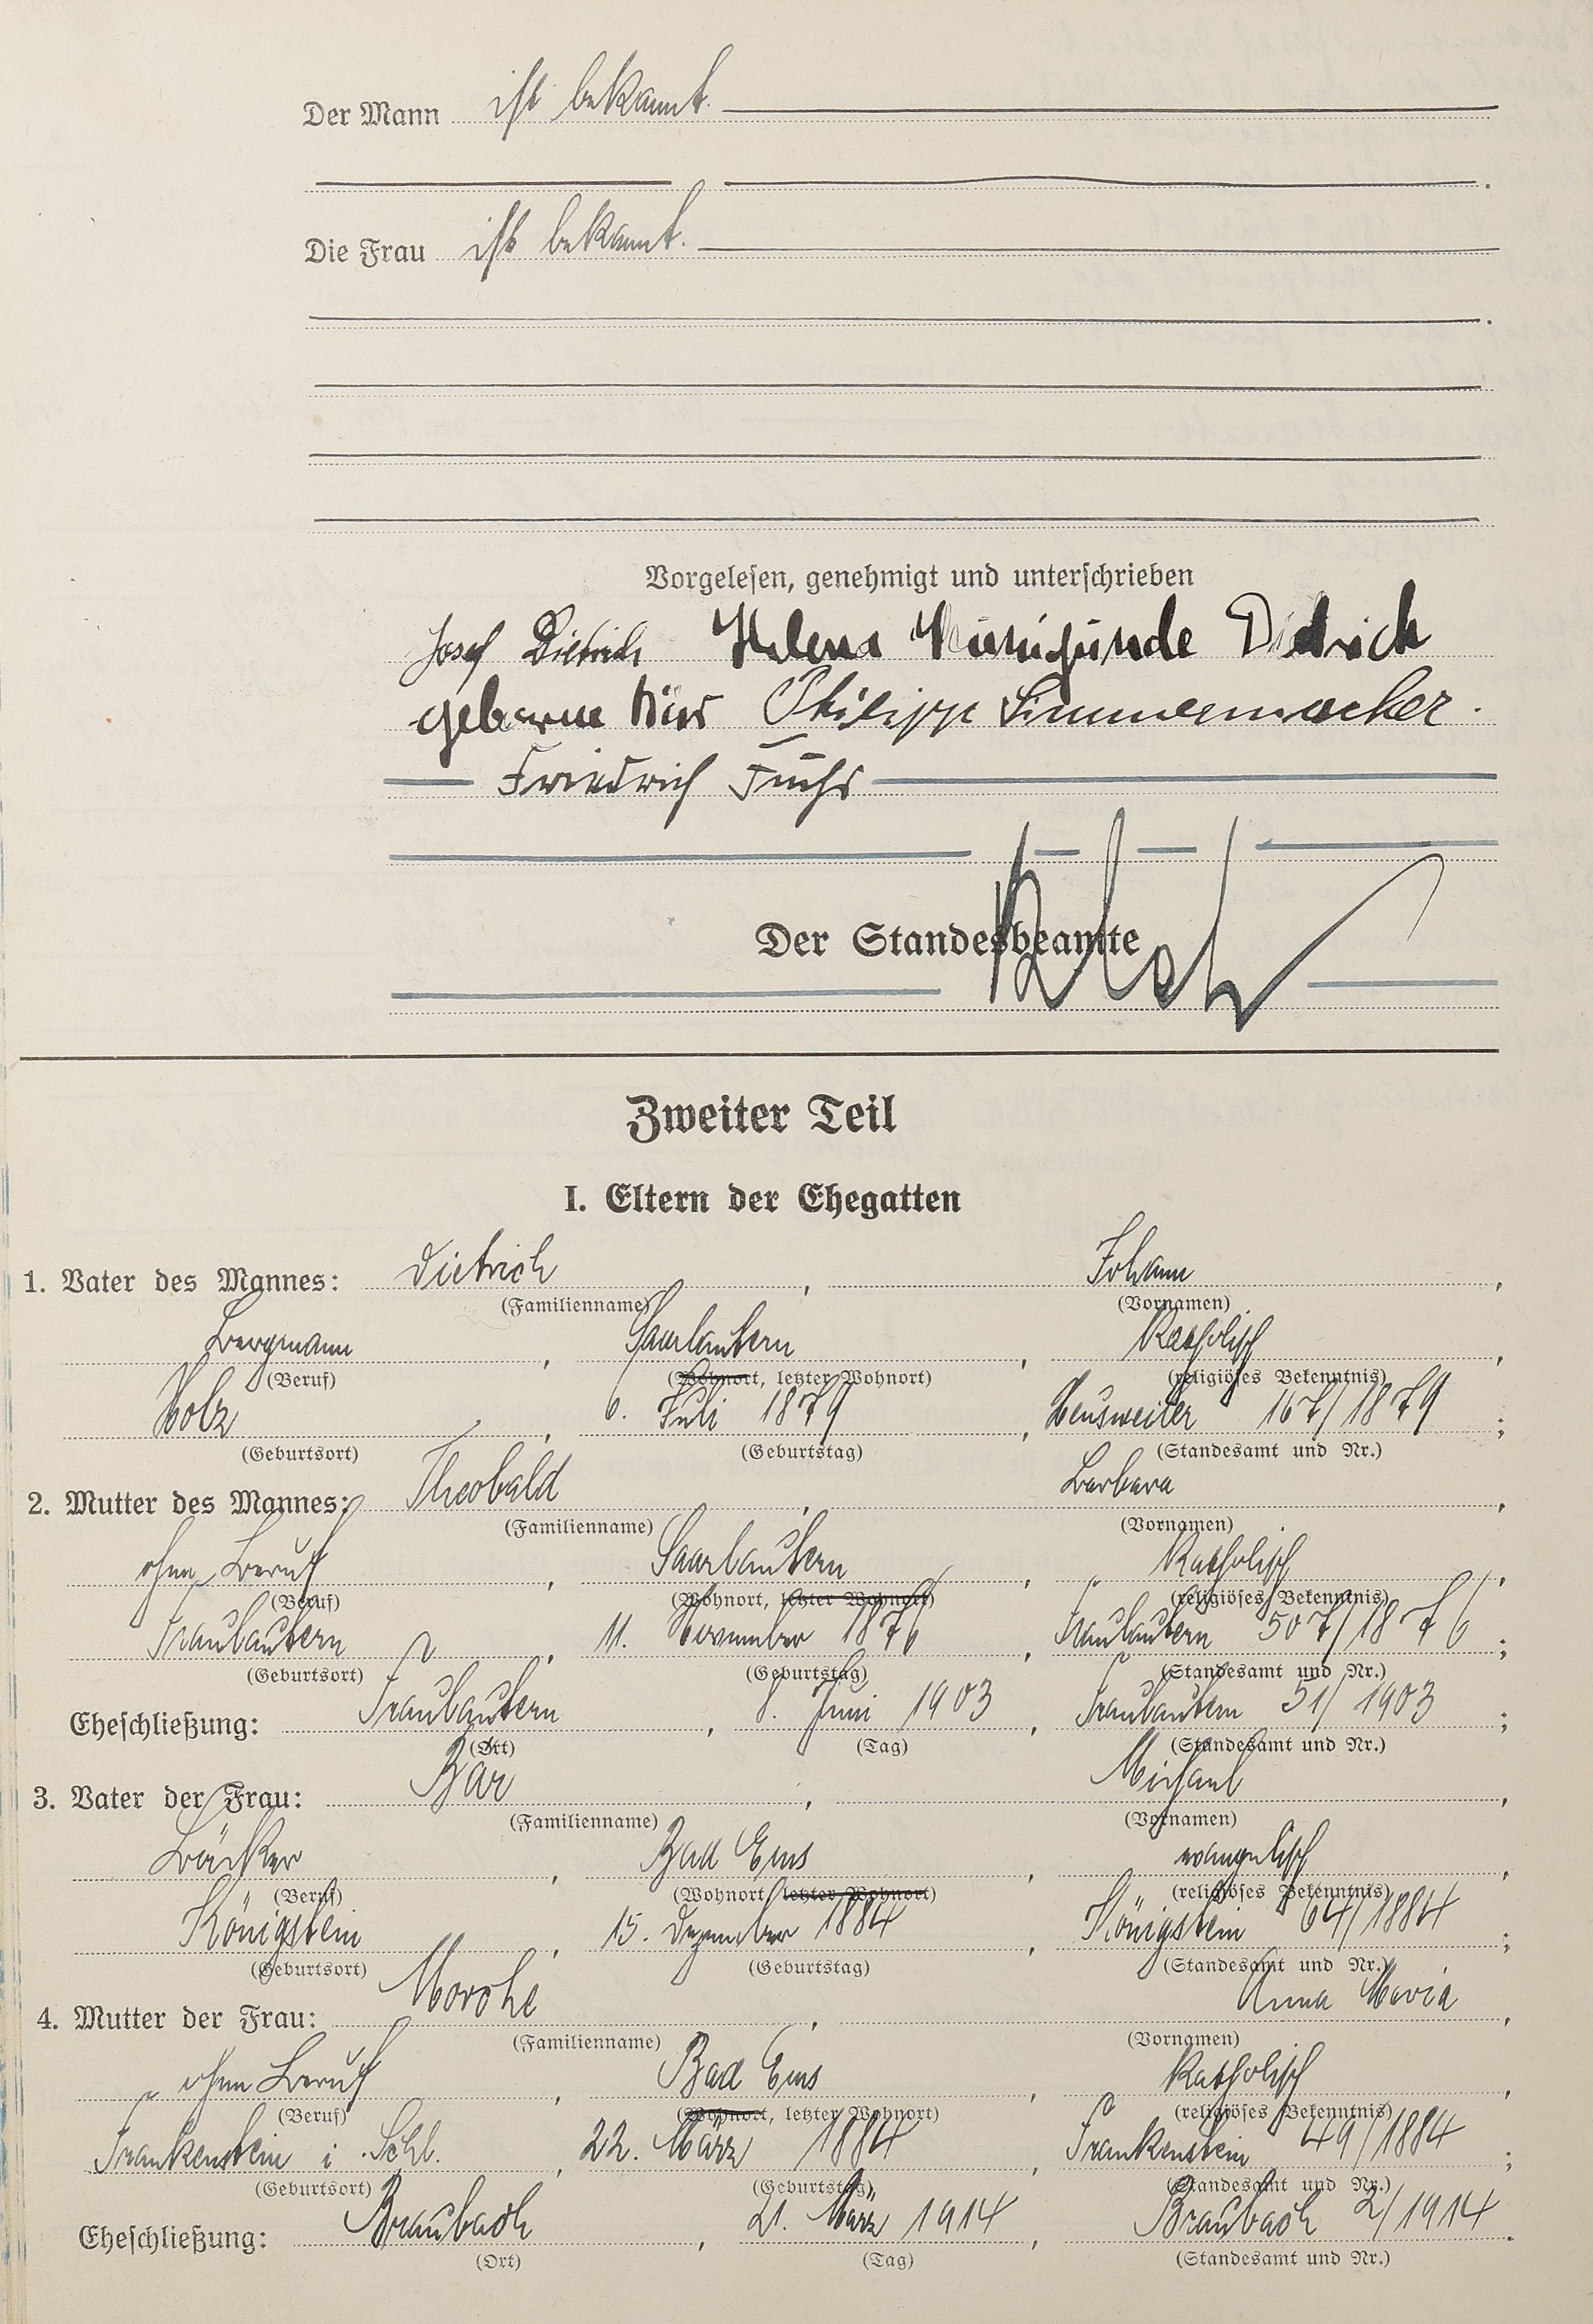 Der Mann ist bekannt.
Die Frau ist bekannt.
Vorgelesen, genehmigt und unterschrieben
Josef Dietrich Helena Kunigunde Dietrich
geborene Bär Philipp Simmermacher.
Friedrich Fuchs
Der Standesbeamte
Zweiter Teil
I. Eltern der Ehegatten
1. Vater des Mannes: Dietrich, Johann,
(Familienname) (Vornamen)
Bergmann, Saarlautern, Katholisch,
(Beruf) (Wohnort, letzter Wohnort) (religiöses Bekenntnis)
Holz, 6. Juli 1879, Heusweiler 167/1879;
(Geburtsort) (Geburtstag) (Standesamt und Nr.)
2. Mutter des Mannes: Theobald, Barbara,
(Familienname) (Vornamen)
ohne Beruf, Saarlautern, Katholisch,
(Beruf) (Wohnort, letzter Wohnort) (religiöses Bekenntnis)
Fraulautern, 11. November 1876, Fraulautern 507/1876;
(Geburtsort) (Geburtstag) (Standesamt und Nr.)
Eheschließung: Fraulautern, 8. Juni 1903, Fraulautern 51/1903;
(Ort) (Tag) (Standesamt und Nr.)
3. Vater der Frau: Bär, Michael,
(Familienname) (Vornamen)
Bäcker, Bad Ems, evangelisch,
(Beruf) (Wohnort, letzter Wohnort) (religiöses Bekenntnis)
Königstein, 15. Dezember 1884, Königstein 64/1884;
(Geburtsort) (Geburtstag) (Standesamt und Nr.)
4. Mutter der Frau: Morche, Anna Maria,
(Familienname) (Vornamen)
ohne Beruf, Bad Ems, Katholisch,
(Beruf) (Wohnort, letzter Wohnort) (religiöses Bekenntnis)
Frankenstein i. Schl., 22. März 1884, Frankenstein 49/1884;
(Geburtsort) (Geburtstag) (Standesamt und Nr.)
Eheschließung: Braubach, 21. März 1914, Braubach 2/1914.
(Ort) (Tag) (Standesamt und Nr.)